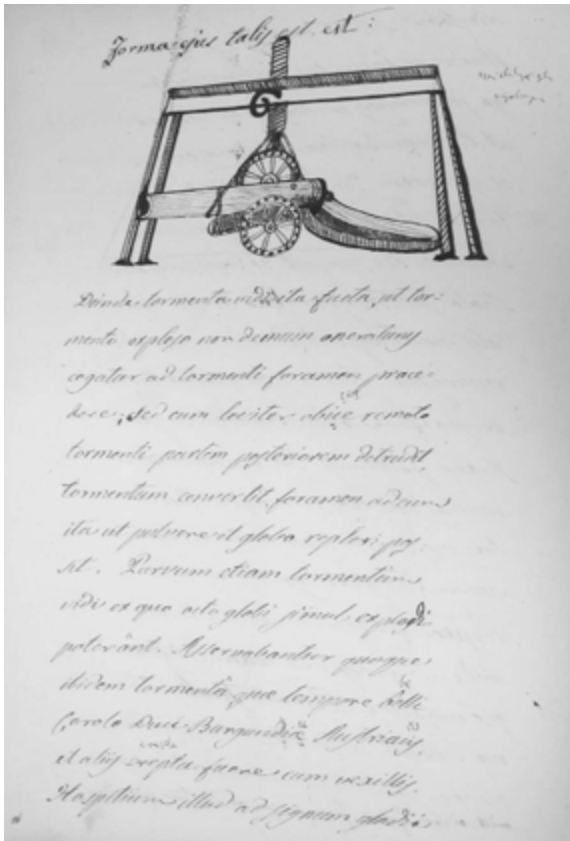 Forma ejus talis est. est:
Deinde tormenta vidi ita facta, ut tor-
mento exploso non demum operarius
cogatur ad tormenti foramen proce-
dere; sed cum leviter obice remoto
tormenti partem posteriorem detrudit,
tormentum convertit foramen ad eum
ita ut pulvere et globo repleri pos-
sit. Parvum etiam tormentum
vidi ex quo octo globi simul explodi
poterant. Asservabantur quoque
ibidem tormenta quae tempore belli
Carolo Duci Burgundiae Austriacis,
et aliis erepta fuere cum vexillis.
Hospitium illud ad signum gladii